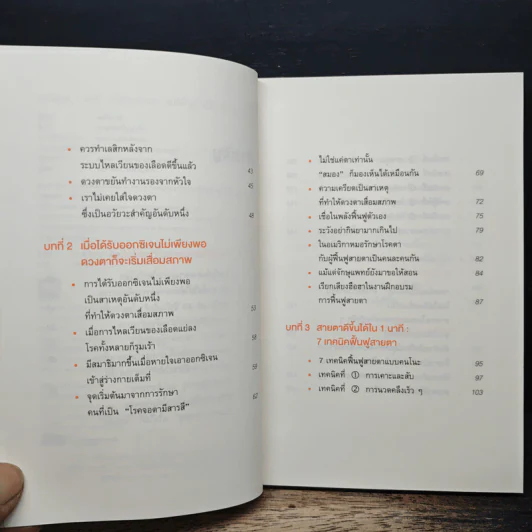 ควรทำเลสิกหลังจาก
ระบบไหลเวียนของเลือดดีขึ้นแล้ว 41
ดวงตาขยันทำงานรองจากหัวใจ 45
เราไม่เคยใส่ใจดวงตา
ซึ่งเป็นอวัยวะสำคัญอันดับหนึ่ง 48
บทที่ 2 เมื่อได้รับออกซิเจนไม่เพียงพอ
ดวงตาก็จะเริ่มเสื่อมสภาพ
การได้รับออกซิเจนไม่เพียงพอ
เป็นสาเหตุอันดับหนึ่ง
ที่ทำให้ดวงตาเสื่อมสภาพ 53
เมื่อการไหลเวียนของเลือดแย่ลง
โรคทั้งหลายก็รุมเร้า 58
มีสมาธิมากขึ้นเมื่อหายใจเอาออกซิเจน
เข้าสู่ร่างกายเต็มที่ 59
จุดเริ่มต้นมาจากการรักษา
คนที่เป็น "โรคจอตามีสารสี" 62
ไม่ใช่แค่ตาเท่านั้น
"สมอง" ก็มองเห็นได้เหมือนกัน 69
ความเครียดเป็นสาเหตุ
ที่ทำให้ตาเสื่อมสภาพ 72
เชื่อในพลังฟื้นฟูตัวเอง 75
ระวังอย่ากินยามากเกินไป 79
ในอเมริกาหมอรักษาโรคตา
กับผู้ฟื้นฟูสายตาเป็นคนละคนกัน 82
แม้แต่จักษุแพทย์ยังมาขอให้สอน 84
เรียกเสียงฮือฮาในงานฝึกอบรม
การฟื้นฟูสายตา 87
บทที่ 3 สายตาดีขึ้นได้ใน 1 นาที :
7 เทคนิคฟื้นฟูสายตา
7 เทคนิคฟื้นฟูสายตาแบบคนโนะ 95
เทคนิคที่ ① การเคาะและสับ 97
เทคนิคที่ ② การนวดคลึงเร็ว ๆ 103